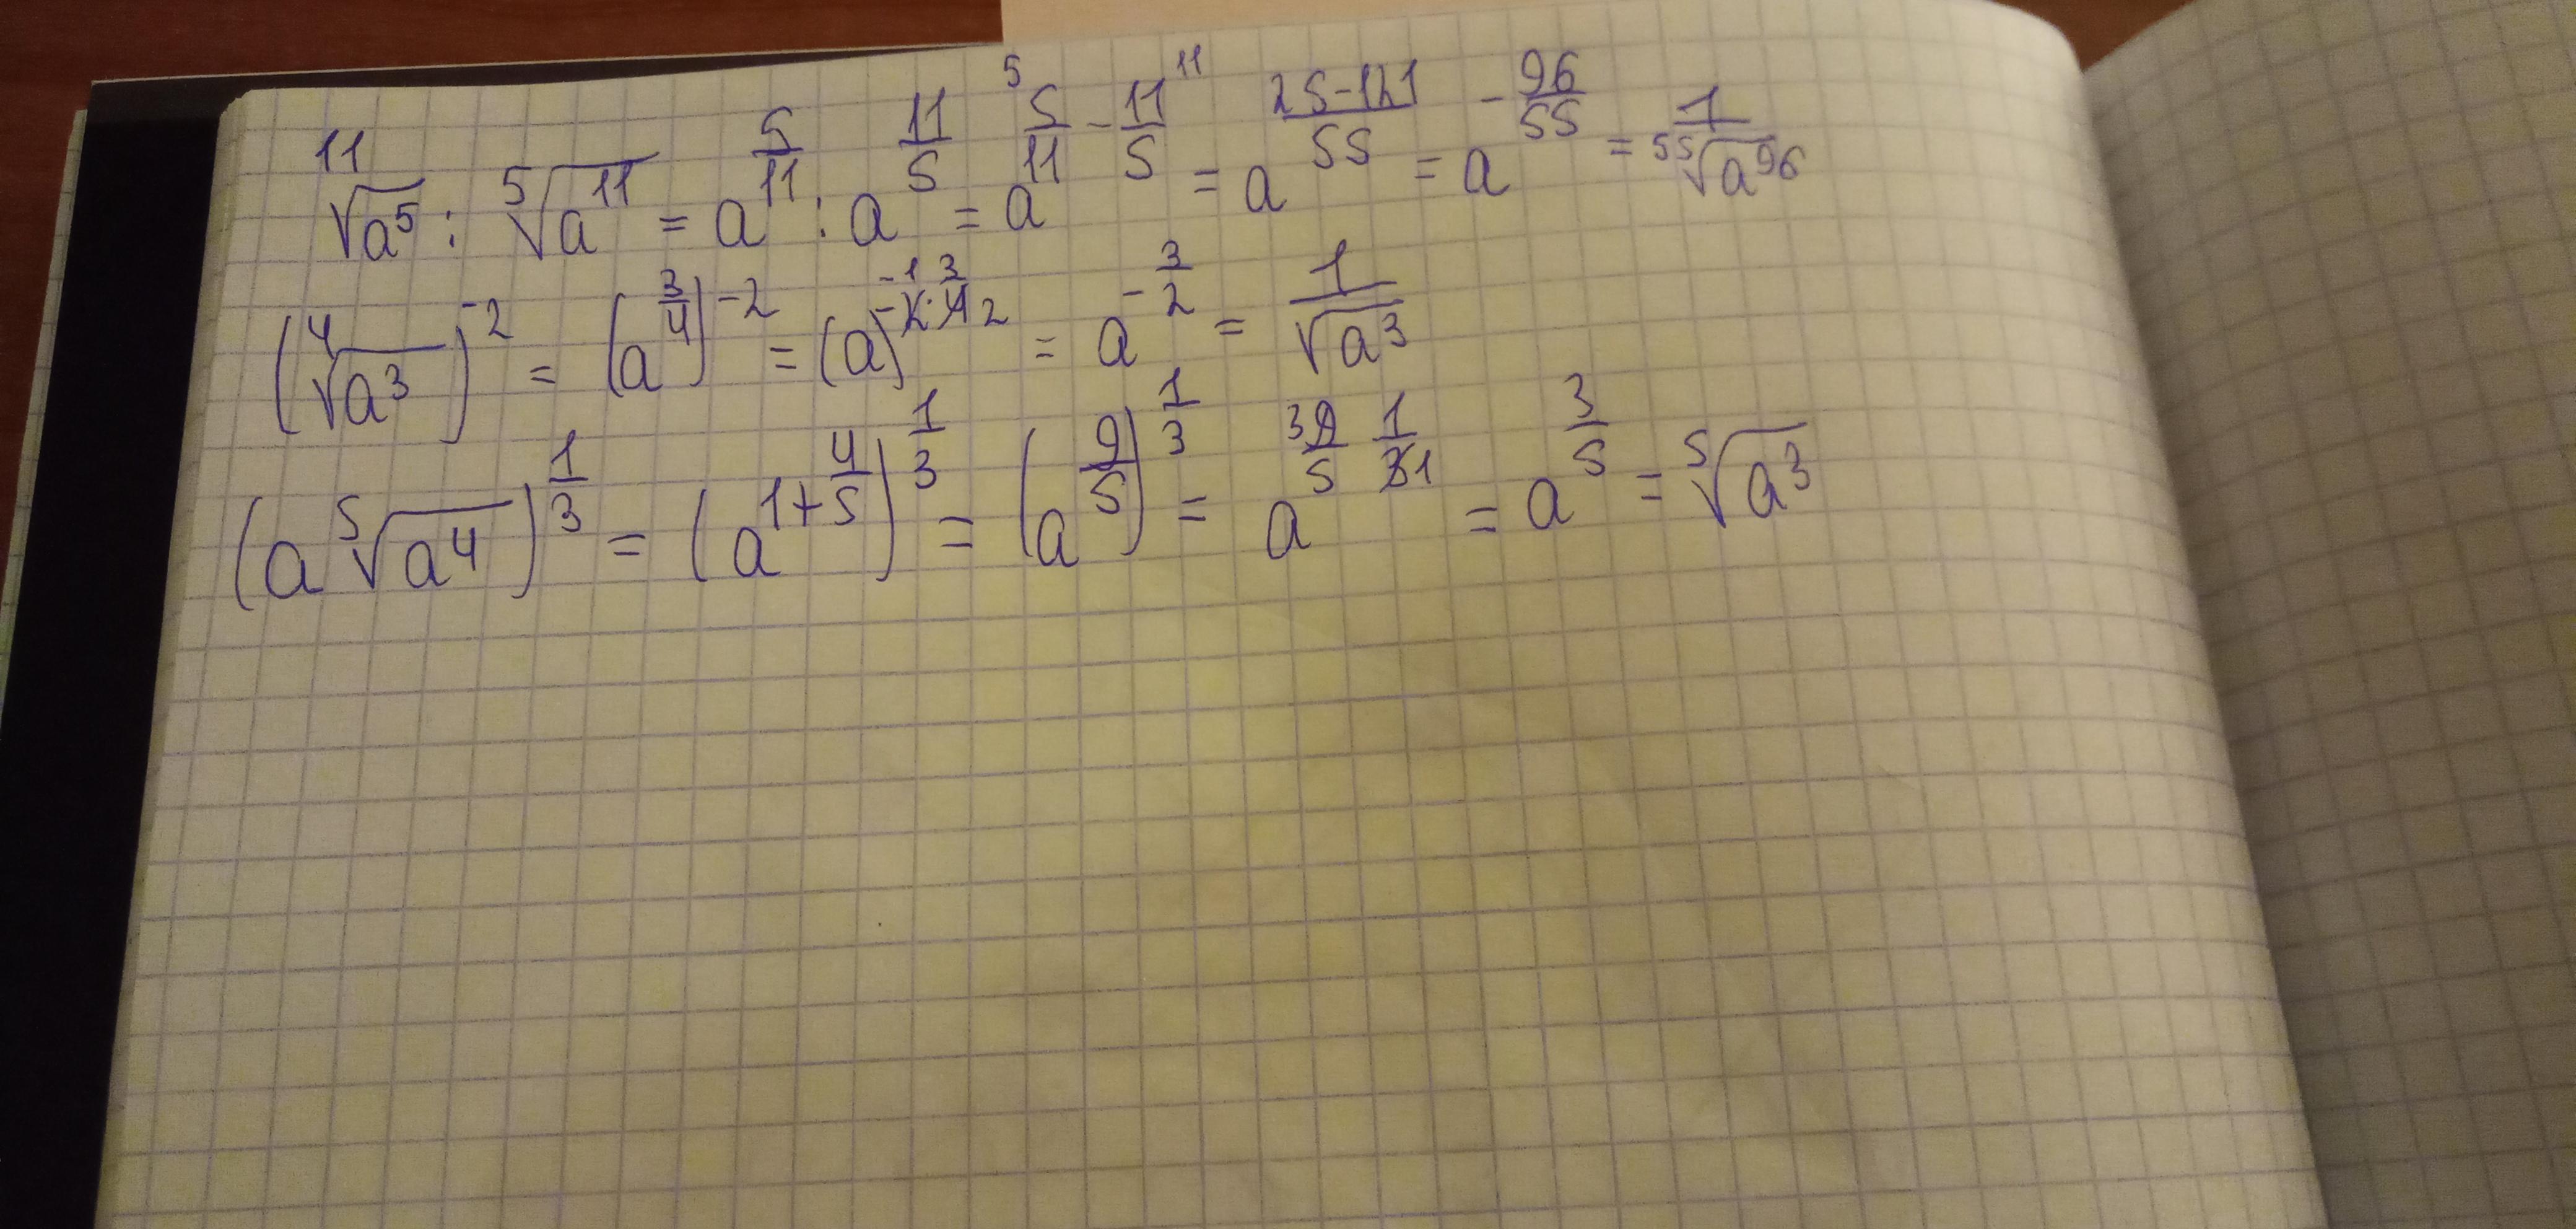 ¹¹√a⁵ : ⁵√a¹¹ = a^(5/11) : a^(11/5) = a^(⁵ 5/11 - 11/5 ¹¹) = a^((25-121)/55) = a^(-96/55) = 1/⁵⁵√a⁹⁶
(⁴√a³)^(-2) = (a^(3/4))^(-2) = (a)^(-1 -2 · 3/4 2) = a^(-3/2) = 1/√a³
(a ⁵√a⁴)^(1/3) = (a^(1+4/5))^(1/3) = (a^(9/5))^(1/3) = a^(3 9/5 1/3 1) = a^(3/5) = ⁵√a³